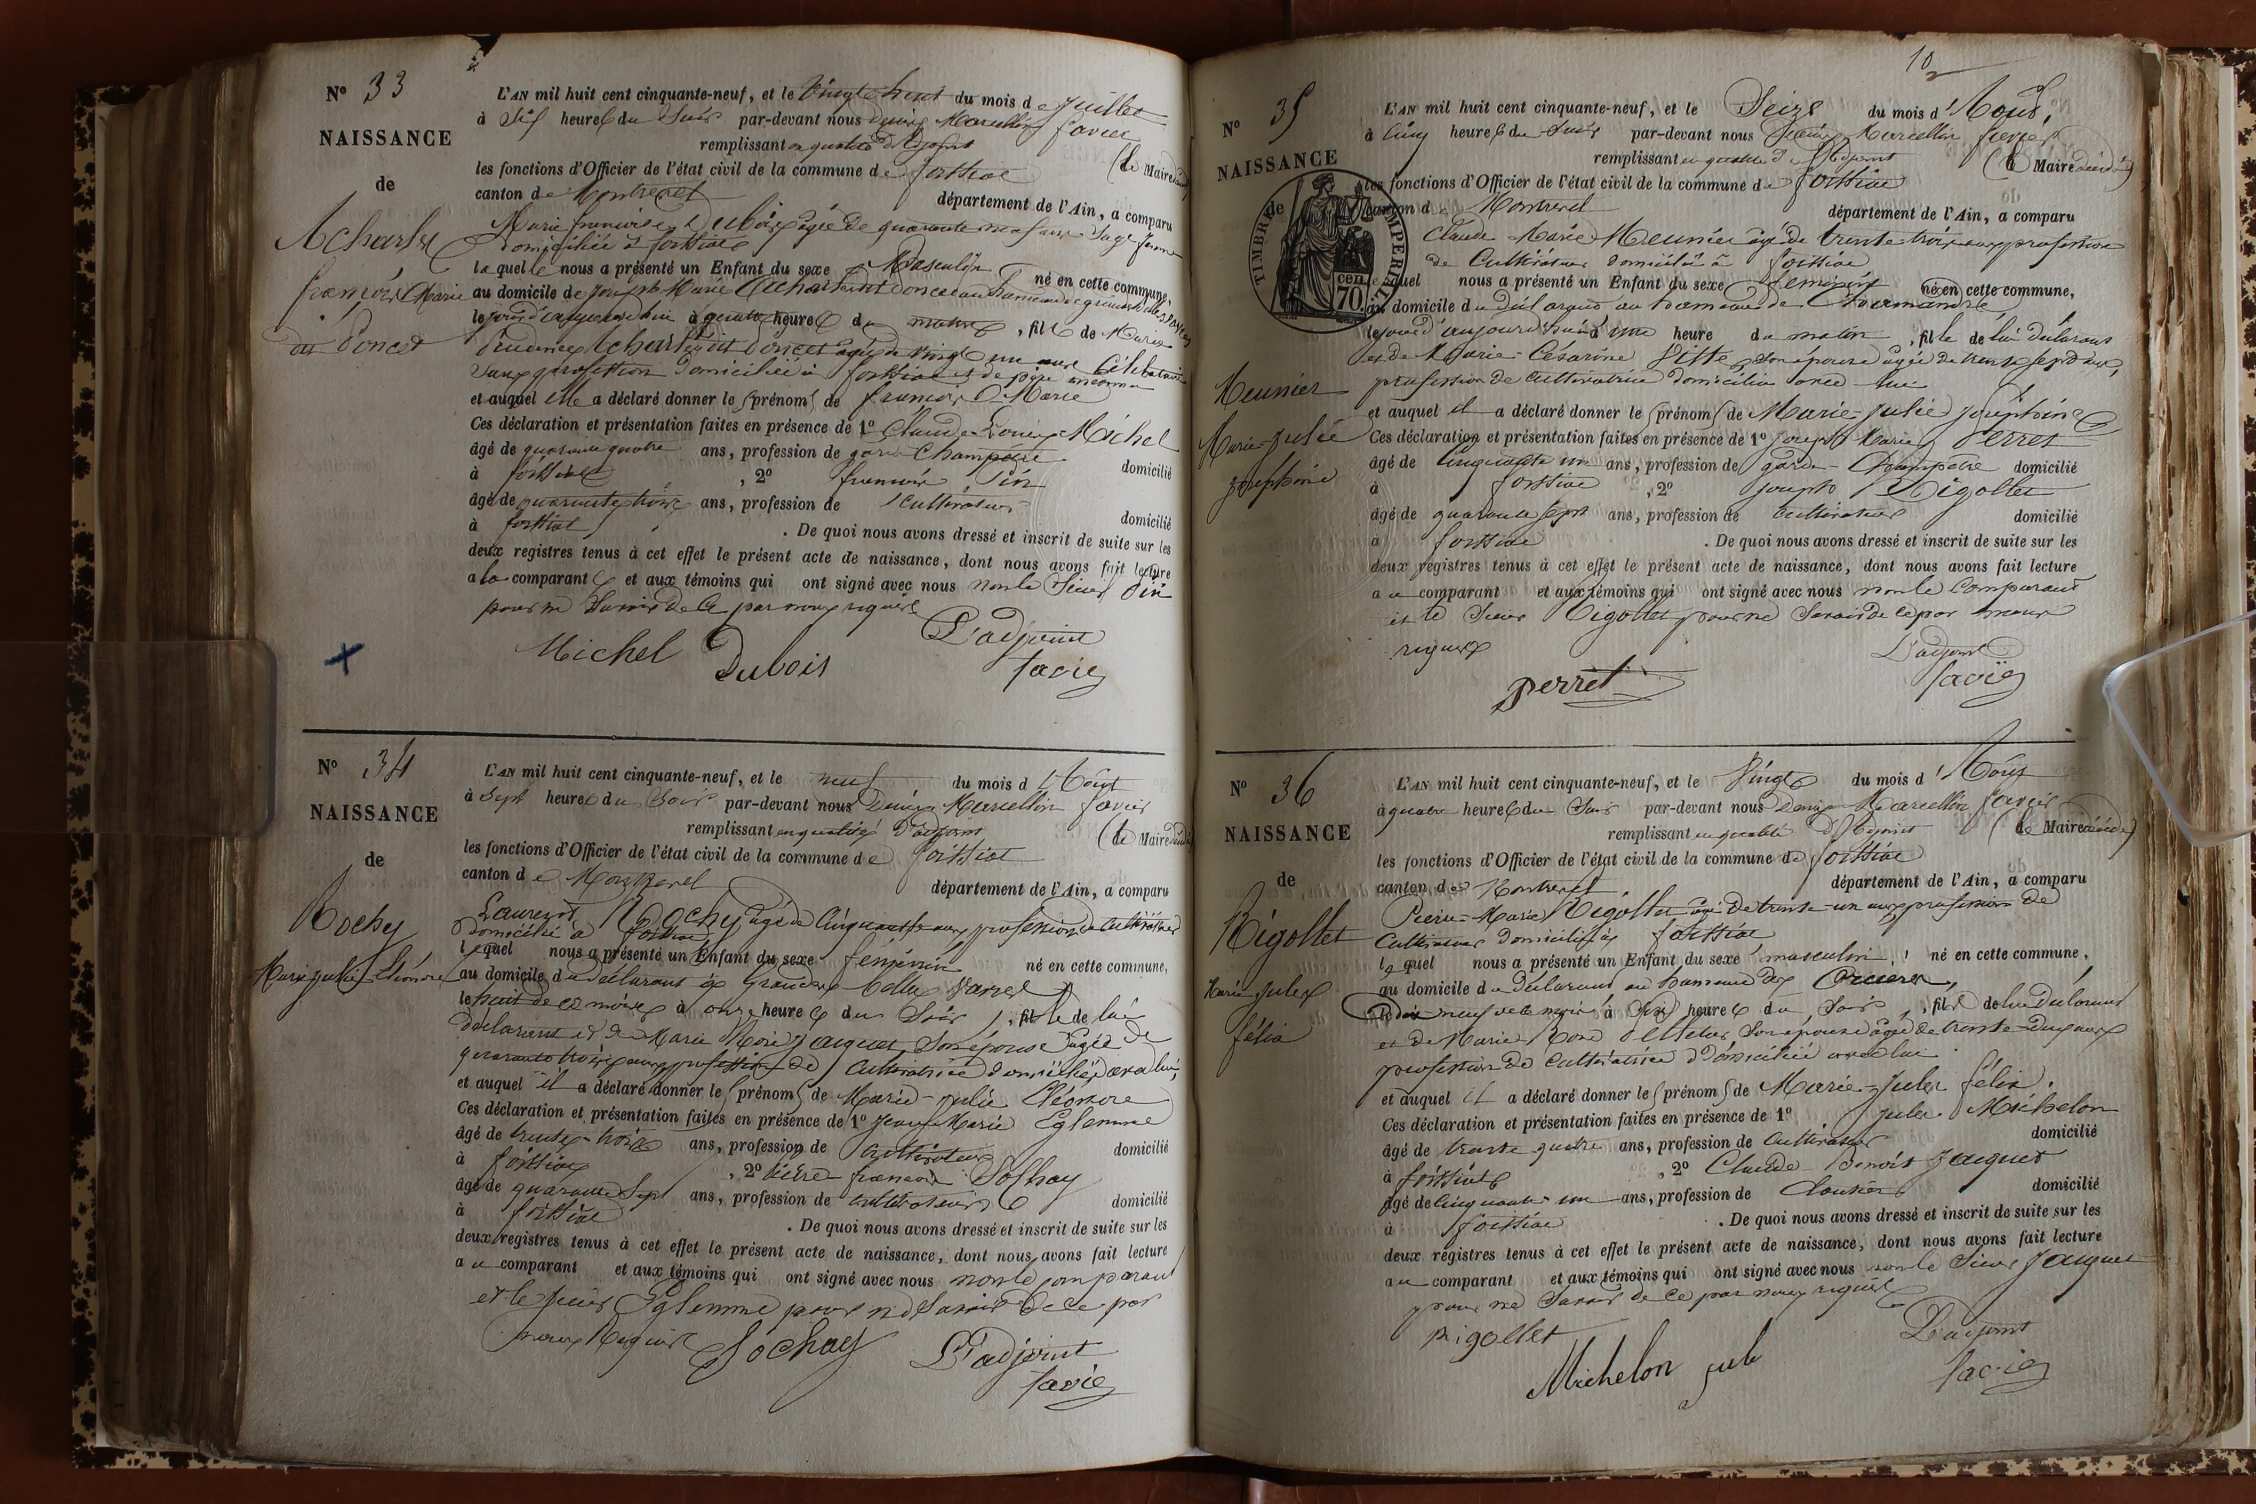 N° 33
NAISSANCE
de
Acharler
françois Marie
dit Poncet
L'AN mil huit cent cinquante-neuf, et le vingt huit du mois de Juillet
à Six heures du Soir par-devant nous Denis Marcellin favier
remplissant en qualité d'adjoint
les fonctions d'Officier de l'état civil de la commune de foissiat (le Maire
canton de Montrevel département de l'Ain, a comparu
Marie françoise Dubois âgée de quarante neuf ans Sage femme
Domiciliée à foissiat
laquelle nous a présenté un Enfant du sexe Masculin né en cette commune,
au domicile de Joseph Marie
le jour d'aujourd'hui à quatre heures du matin, fils de Marie
dit Poncet âgée de vingt un ans Célibataire
Sans profession domiciliée à foissiat et de père inconnu
et auquel elle a déclaré donner les prénoms de françois Marie
Ces déclaration et présentation faites en présence de 1° Claude Louis Michel
âgé de quarante quatre ans, profession de garde Champêtre domicilié
à foissiat, 2° françois Pin
âgé de quarante trois ans, profession de Cultivateur domicilié
à foissiat. De quoi nous avons dressé et inscrit de suite sur les
deux registres tenus à cet effet le présent acte de naissance, dont nous avons fait lecture
a la comparante et aux témoins qui ont signé avec nous non le Sieur Pin
pour ne Savoir de ce par nous requis
Michel Dubois L'adjoint
favier
N° 34
NAISSANCE
de
Rochy
Marie julie Eléonore
L'AN mil huit cent cinquante-neuf, et le neuf du mois d'Août
à Sept heures du Soir par-devant nous Denis Marcellin favier
remplissant en qualité d'adjoint
les fonctions d'Officier de l'état civil de la commune de foissiat (le Maire
canton de Montrevel département de l'Ain, a comparu
Laurent Rochy âgé de Cinquante ans profession de cultivateur
domicilié à foissiat
lequel nous a présenté un Enfant du sexe féminin né en cette commune,
au domicile du déclarant
le huit de ce mois à onze heures du Soir, fille de lui
déclarant et de Marie Rose Jacquet Son épouse âgée de
quarante trois ans profession de Cultivatrice domiciliée avec lui,
et auquel il a déclaré donner les prénoms de Marie-julie Eléonore
Ces déclaration et présentation faites en présence de 1° Jean-Marie Eglemme
âgé de trente-trois ans, profession de cultivateur domicilié
à foissiat, 2° Pierre françois Sochay
âgé de quarante Sept ans, profession de cultivateur domicilié
à foissiat. De quoi nous avons dressé et inscrit de suite sur les
deux registres tenus à cet effet le présent acte de naissance, dont nous avons fait lecture
au comparant et aux témoins qui ont signé avec nous non le comparant
et le Sieur Eglemme pour ne Savoir de ce par
nous Requis Sochay L'adjoint
favier
10
N° 35
NAISSANCE
de
TIMBRE IMPERIAL
70 cen
Meunier
Marie-Julie
Joséphine
L'AN mil huit cent cinquante-neuf, et le Seize du mois d'Août,
à Cinq heures du Soir par-devant nous Denis Marcellin favier
remplissant en qualité d'adjoint (le Maire décédé)
les fonctions d'Officier de l'état civil de la commune de foissiat
canton de Montrevel département de l'Ain, a comparu
Claude Marie Meunier âgé de trente trois ans profession
de Cultivateur domicilié à foissiat
lequel nous a présenté un Enfant du sexe féminin né en cette commune,
au domicile du déclarant au hameau de
le jour d'aujourd'hui à une heure du matin, fille de lui déclarant
et de Marie-Césarine Pitte son épouse âgée de trente sept ans,
profession de cultivatrice domiciliée avec lui
et auquel il a déclaré donner les prénoms de Marie-Julie Joséphine
Ces déclaration et présentation faites en présence de 1° Joseph Marie Perret
âgé de Cinquante un ans, profession de garde-Champêtre domicilié
à foissiat, 2° Joseph Rigollet
âgé de quarante Sept ans, profession de cultivateur domicilié
à foissiat. De quoi nous avons dressé et inscrit de suite sur les
deux registres tenus à cet effet le présent acte de naissance, dont nous avons fait lecture
au comparant et aux témoins qui ont signé avec nous non le Comparant
et le Sieur Rigollet pour ne Savoir de ce par nous
requis L'adjoint
Perret favier
N° 36
NAISSANCE
de
Rigollet
Marie Jules
félix
L'AN mil huit cent cinquante-neuf, et le Vingt du mois d'Août
à quatre heures du Soir par-devant nous Denis Marcellin favier
remplissant en qualité d'adjoint (le Maire décédé)
les fonctions d'Officier de l'état civil de la commune de foissiat
canton de Montrevel département de l'Ain, a comparu
Pierre-Marie Rigollet âgé de trente-un ans profession de
Cultivateur domicilié à foissiat
lequel nous a présenté un Enfant du sexe masculin, né en cette commune,
au domicile du déclarant au hameau des
le dix neuf de ce mois à Six heures du Soir, fils de lui déclarant
et de Marie Rose Son épouse âgée de trente-deux ans
profession de Cultivatrice domiciliée avec lui
et auquel il a déclaré donner les prénoms de Marie-Jules félix.
Ces déclaration et présentation faites en présence de 1° Jules Michelon
âgé de trente quatre ans, profession de Cultivateur domicilié
à foissiat, 2° Claude-Benoit Jacquet
âgé de cinquante un ans, profession de Cloutier domicilié
à foissiat. De quoi nous avons dressé et inscrit de suite sur les
deux registres tenus à cet effet le présent acte de naissance, dont nous avons fait lecture
au comparant et aux témoins qui ont signé avec nous non le Sieur Jacquet
pour ne Savoir de ce par nous requis
Rigollet L'adjoint
Michelon jule favier